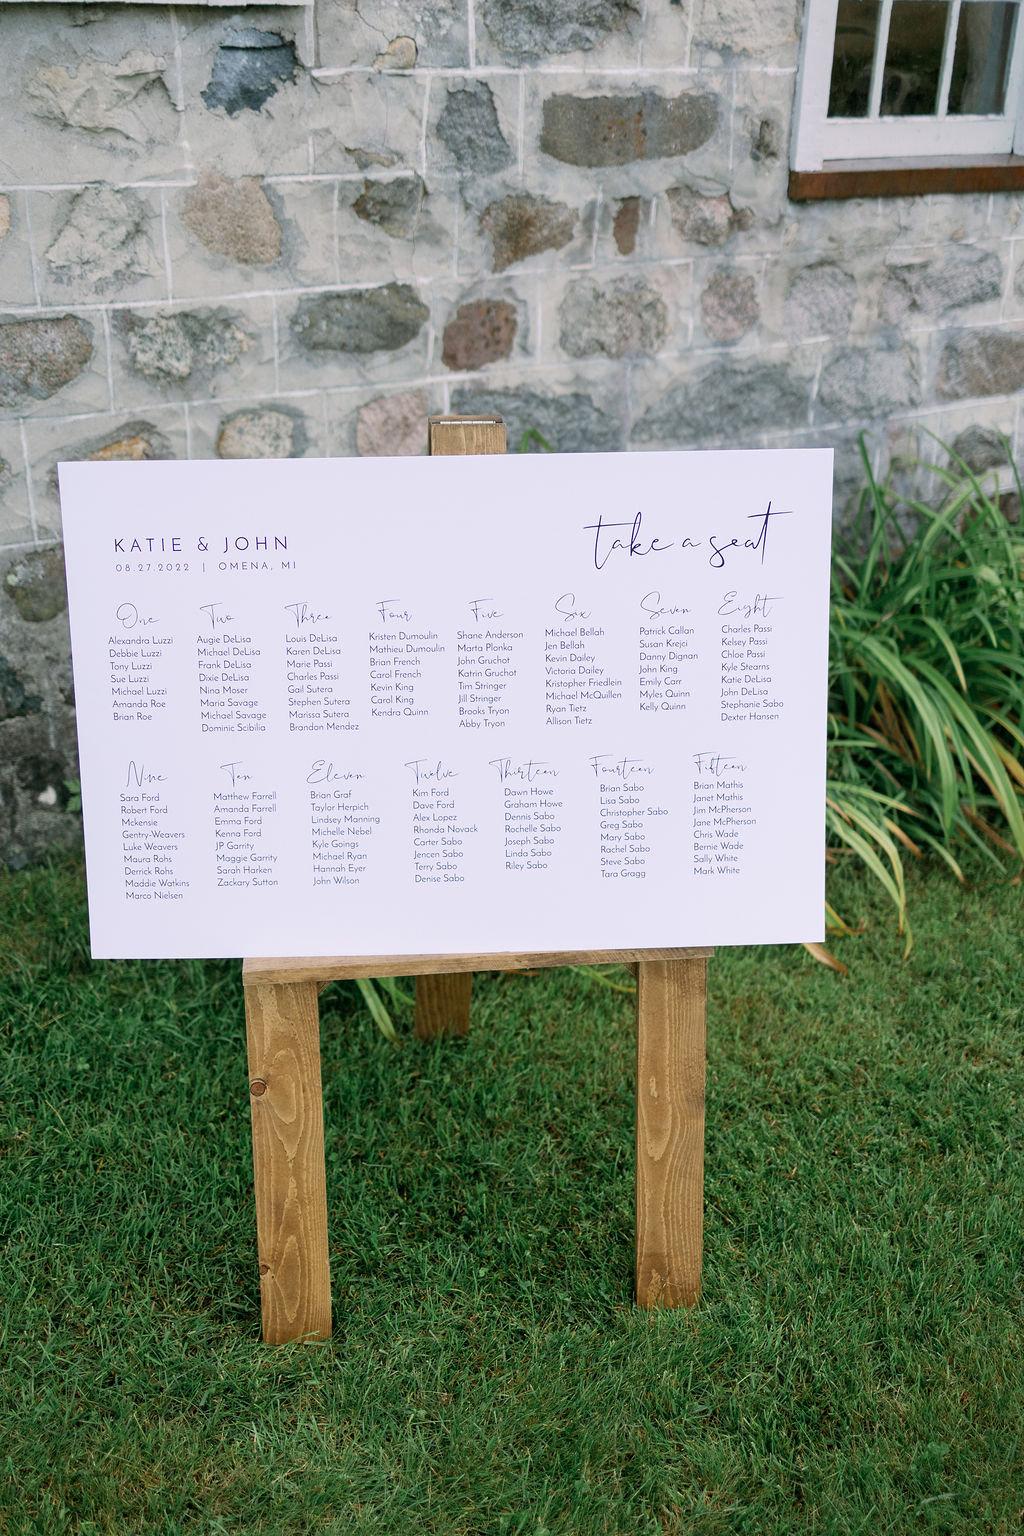 KATIE & JOHN
08.27.2022 | OMENA, MI
take a seat
One
Alexandra Luzzi
Debbie Luzzi
Tony Luzzi
Sue Luzzi
Michael Luzzi
Amanda Roe
Brian Roe
Two
Augie DeLisa
Michael DeLisa
Frank DeLisa
Dixie DeLisa
Nina Moser
Maria Savage
Michael Savage
Dominic Scibilia
Three
Louis DeLisa
Karen DeLisa
Marie Passi
Charles Passi
Gail Sutera
Stephen Sutera
Marissa Sutera
Brandon Mendez
Four
Kristen Dumoulin
Mathieu Dumoulin
Brian French
Carol French
Kevin King
Carol King
Kendra Quinn
Five
Shane Anderson
Marta Plonka
John Gruchot
Katrin Gruchot
Tim Stringer
Jill Stringer
Brooks Tryon
Abby Tryon
Six
Michael Bellah
Jen Bellah
Kevin Dailey
Victoria Dailey
Kristopher Friedlein
Michael McQuillen
Ryan Tietz
Allison Tietz
Seven
Patrick Callan
Susan Krejci
Danny Dignan
John King
Emily Carr
Myles Quinn
Kelly Quinn
Eight
Charles Passi
Kelsey Passi
Chloe Passi
Kyle Stearns
Katie DeLisa
John DeLisa
Stephanie Sabo
Dexter Hansen
Nine
Sara Ford
Robert Ford
Mckensie
Gentry-Weavers
Luke Weavers
Maura Rohs
Derrick Rohs
Maddie Watkins
Marco Nielsen
Ten
Matthew Farrell
Amanda Farrell
Emma Ford
Kenna Ford
JP Garrity
Maggie Garrity
Sarah Harken
Zackary Sutton
Eleven
Brian Graf
Taylor Herpich
Lindsey Manning
Michelle Nebel
Kyle Goings
Michael Ryan
Hannah Eyer
John Wilson
Twelve
Kim Ford
Dave Ford
Alex Lopez
Rhonda Novack
Carter Sabo
Jencen Sabo
Terry Sabo
Denise Sabo
Thirteen
Dawn Howe
Graham Howe
Dennis Sabo
Rochelle Sabo
Joseph Sabo
Linda Sabo
Riley Sabo
Fourteen
Brian Sabo
Lisa Sabo
Christopher Sabo
Greg Sabo
Mary Sabo
Rachel Sabo
Steve Sabo
Tara Gragg
Fifteen
Brian Mathis
Janet Mathis
Jim McPherson
Jane McPherson
Chris Wade
Bernie Wade
Sally White
Mark White